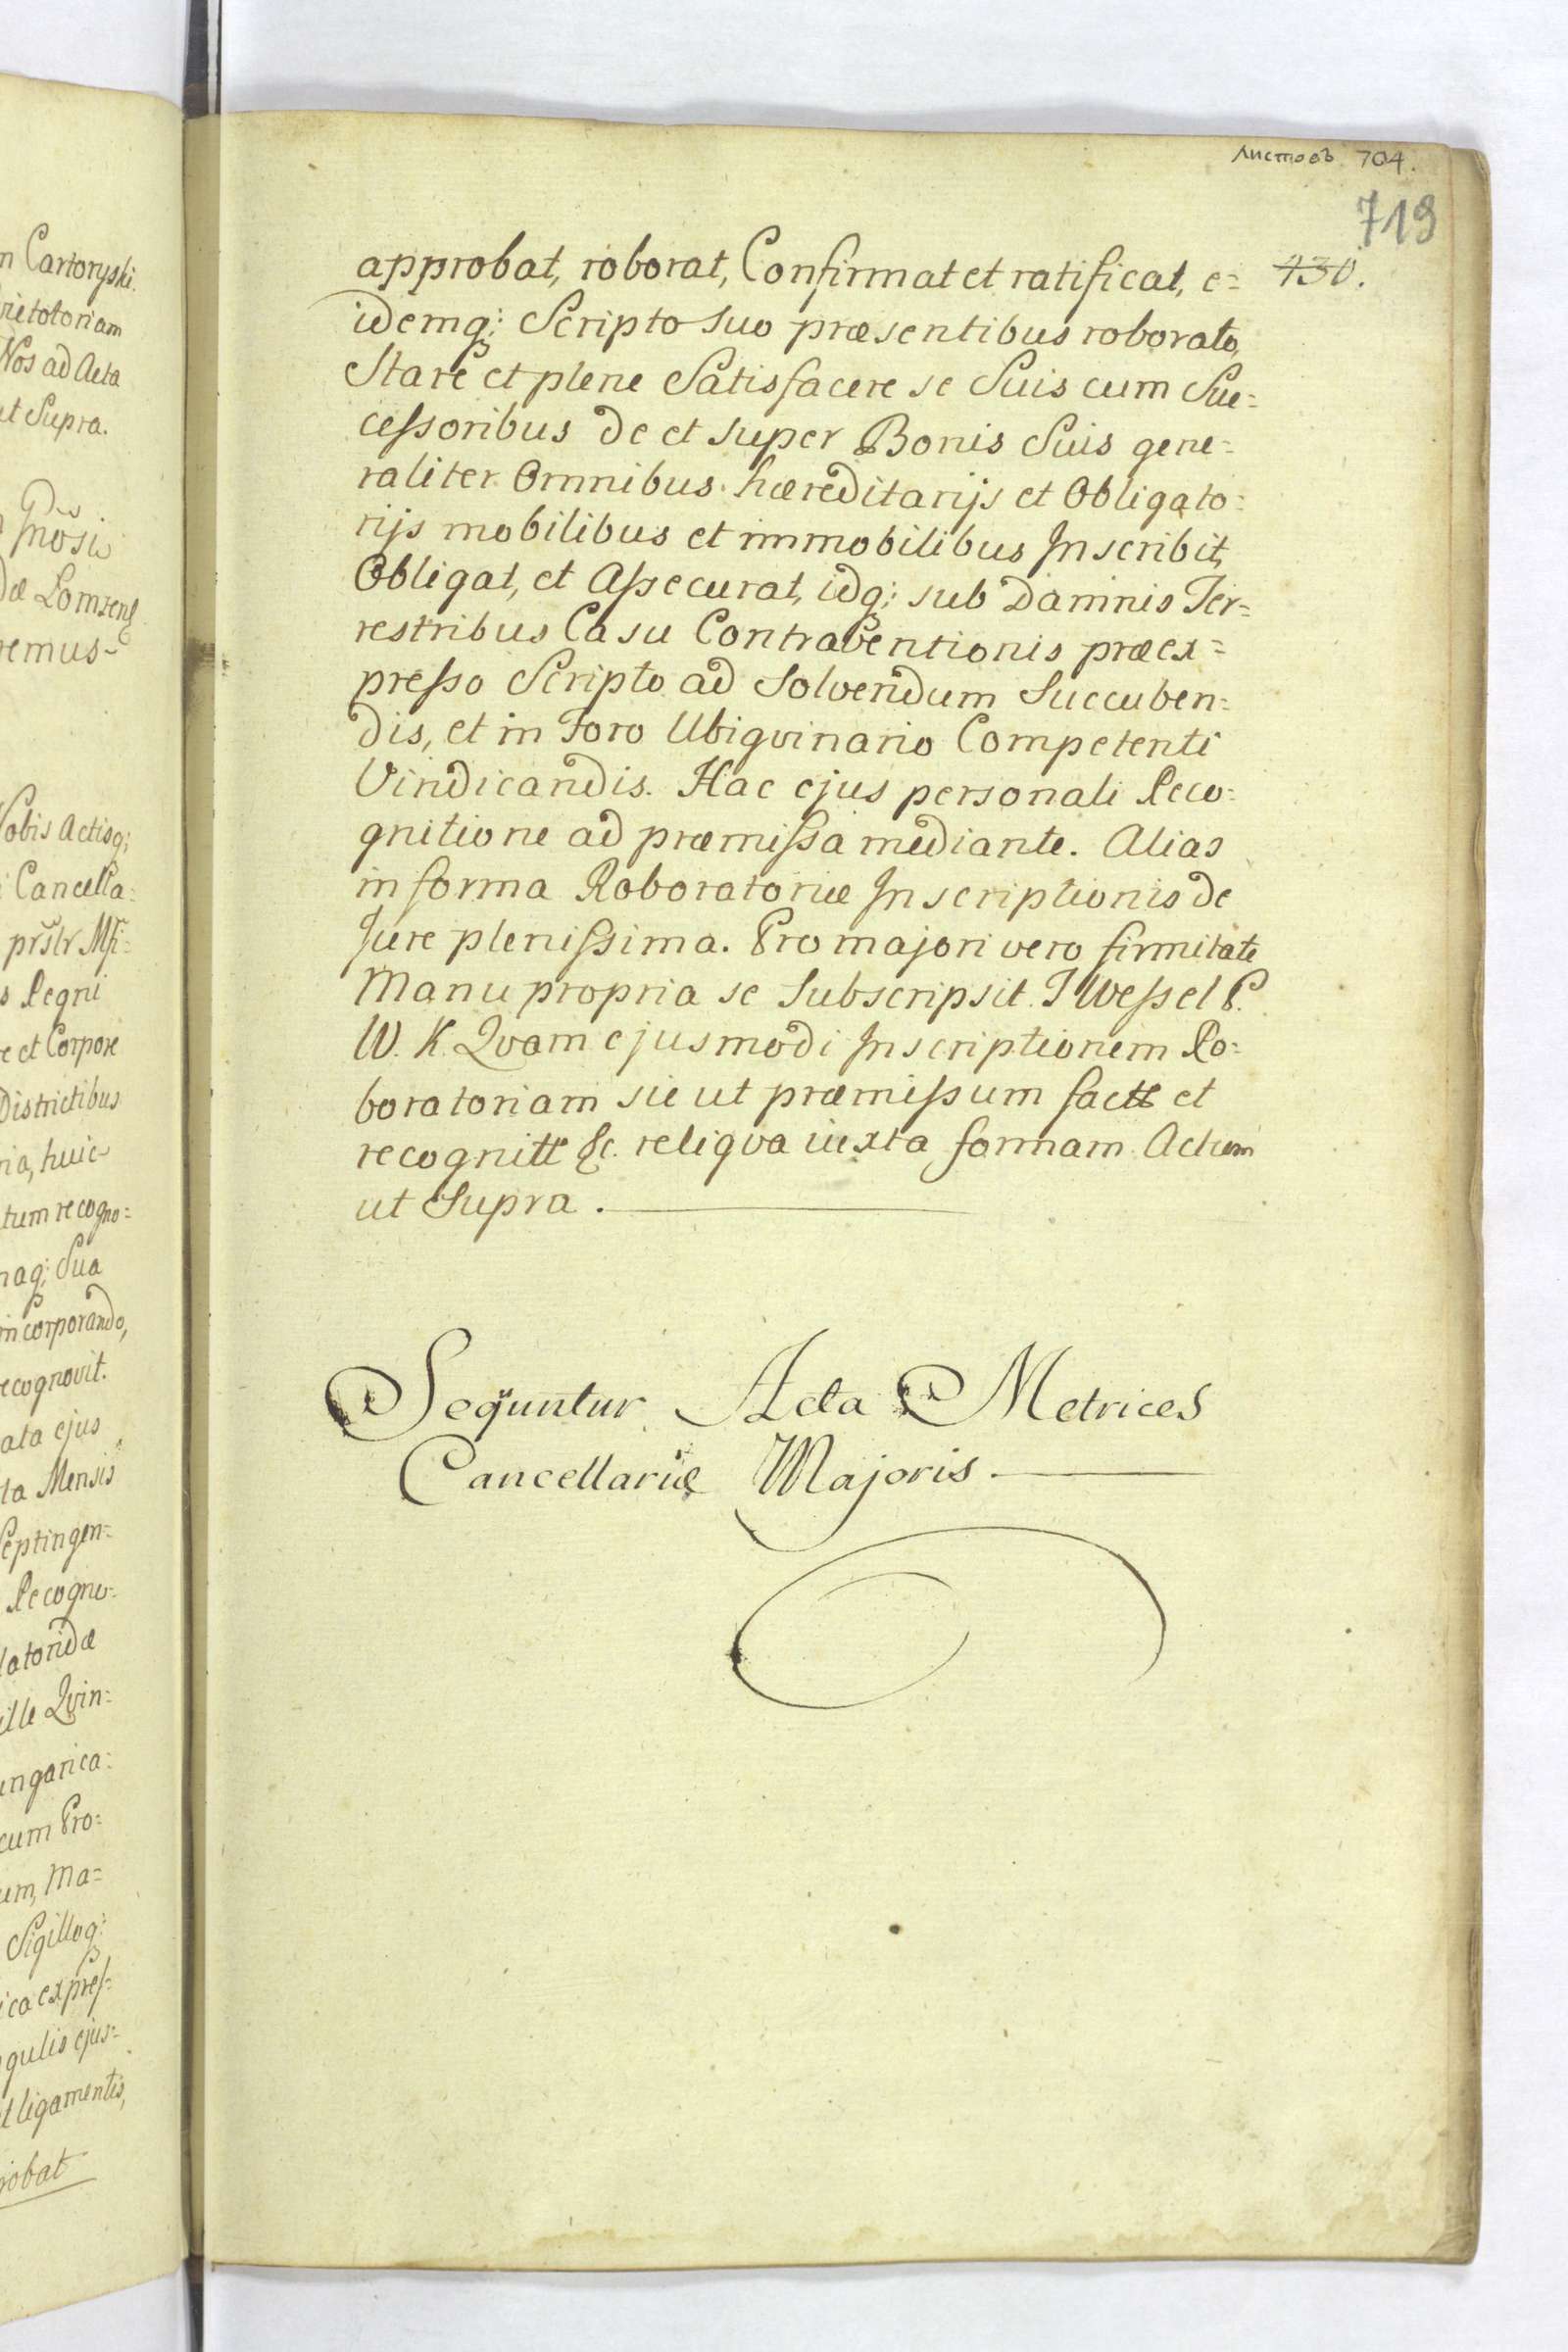 n Cartoryski.
rietotoriam
Nos ad Acta
ut Supra.
Gnõsio
dæ Lomzens
remus
Nobis Actisq;
Cancella=
prs̃lr Mfi=
s Regni
re et Corpore
Districtibus
ria, huic
tum recogno=
naq; Sua
incorporando,
recognovit.
ata ejus
ta Mensis
Septingen=
Recogni=
latoriæ dæ
ille Qvin=
ungarica=
cum Pro=
um, Ma=
Sigilloq;
ica expres=
gulis ejus=
et ligamentis,
robat
листовъ 704.
719
430.
approbat, roborat, Confirmat et ratificat, e=
idemq; Scripto suo præsentibus roborato,
Stare et plene Satisfacere se Suis cum Suc=
cessoribus de et super Bonis Suis gene=
raliter Omnibus hæreditarijs et Obligato=
rijs mobilibus et immobilibus Inscribit,
Obligat, et Assecurat, idq; sub Damnis Ter=
restribus Casu Contraventionis præex=
presso Scripto ad Solvendum Succuben=
dis, et in Foro Ubiqvinario Competenti
Vindicandis. Hac ejus personali Reco=
gnitione ad præmissa mediante. Alias
in forma Roboratoriæ Inscriptionis de
Jure plenissima. Pro majori vero firmitate
Manu propria se Subscripsit. T Wessel P.
W. K. Qvam ejusmodi Inscriptionem Ro=
boratoriam sic ut præmissum factt et
recognitt &c. reliqva iuxta formam Actum
ut Supra.
Sequntur Acta Metrices
Cancellariæ Majoris.